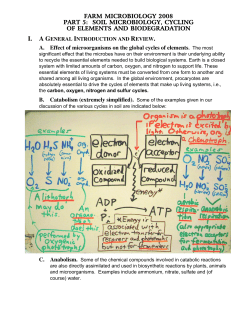 FARM MICROBIOLOGY 2008
PART 5: SOIL MICROBIOLOGY, CYCLING
OF ELEMENTS AND BIODEGRADATION
I. A GENERAL INTRODUCTION AND REVIEW.
A. Effect of microorganisms on the global cycles of elements. The most
significant effect that the microbes have on their environment is their underlying ability
to recycle the essential elements needed to build biological systems. Earth is a closed
system with limited amounts of carbon, oxygen, and nitrogen to support life. These
essential elements of living systems must be converted from one form to another and
shared among all living organisms. In the global environment, procaryotes are
absolutely essential to drive the cycles of elements that make up living systems, i.e.,
the carbon, oxygen, nitrogen and sulfur cycles.
B. Catabolism (extremely simplified). Some of the examples given in our
discussion of the various cycles in soil are indicated below:
Organism is a phototroph
if electron is excited by
light. Otherwise,
a Chemotroph.
examples
electron
donor
oxidized
compound
electron
acceptor
reduced
compound
*energy*
examples
A lithotroph
may do
this
performed by
oxygenic
phototrophs
ADP
ATP
*Energy is
associated with
electron transfer
but not for fermenters
C. Anabolism. Some of the chemical compounds involved in catabolic reactions
are also directly assimilated and used in biosynthetic reactions by plants, animals
and microorganisms. Examples include ammonium, nitrate, sulfate and (of
course) water.